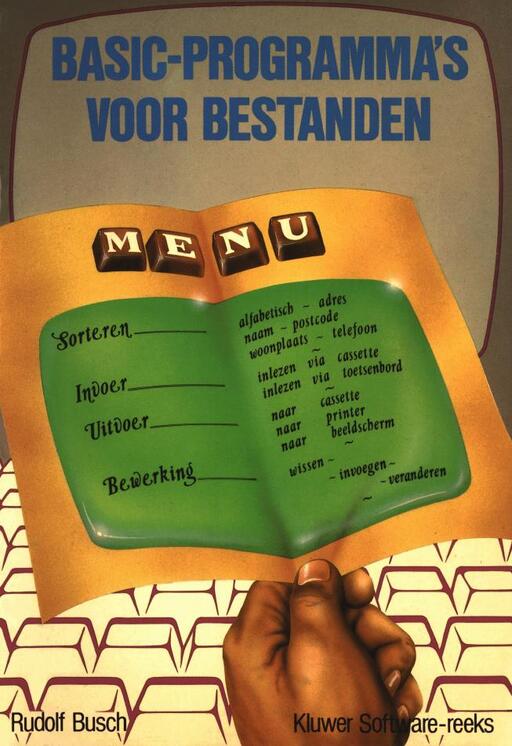 BASIC-PROGRAMMA'S
VOOR BESTANDEN
MENU
Sorteren
alfabetisch ~ adres
naam ~ postcode
woonplaats ~ telefoon
Invoer
inlezen via cassette
inlezen via toetsenbord
Uitvoer
naar cassette
naar printer
naar beeldscherm
~
Bewerking
wissen ~
~ invoegen ~
~ veranderen
~
Rudolf Busch
Kluwer Software-reeks